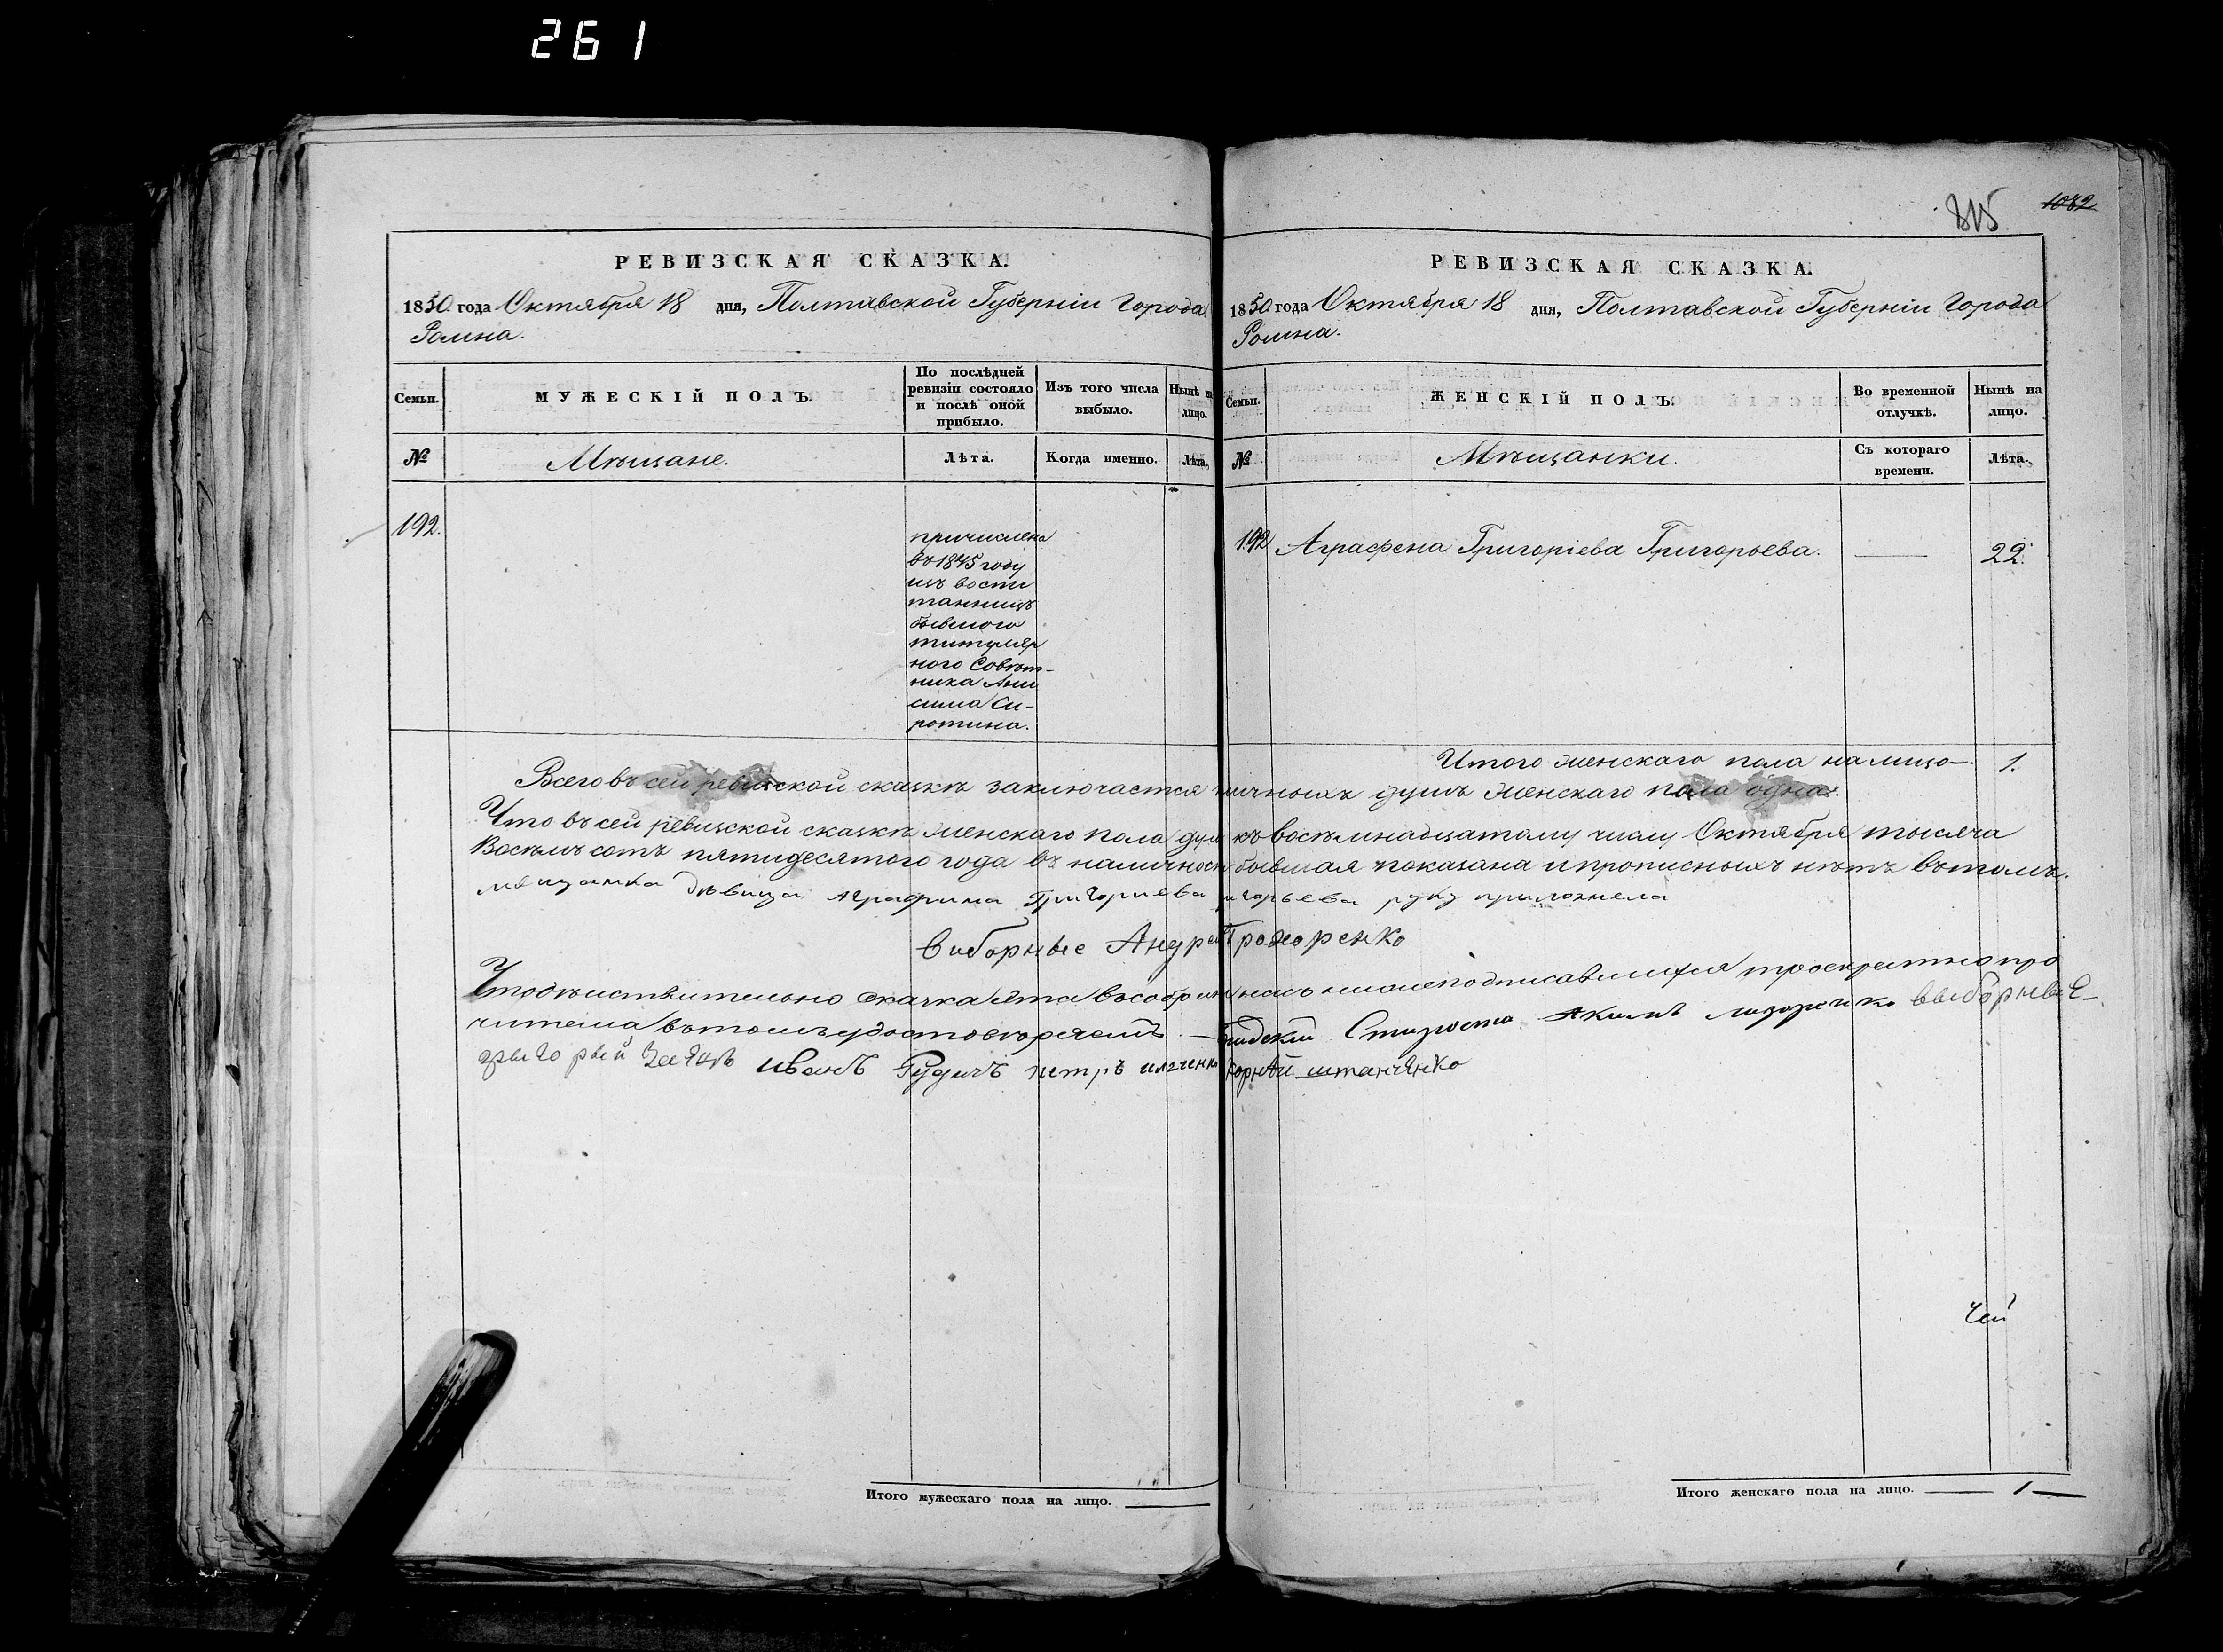 261
815 1082
РЕВИЗСКАЯ СКАЗКА.
1850 года Октября 18 дня, Полтавской Губерніи Города
Ромна.
Семьи. МУЖЕСКІЙ ПОЛЪ. По послѣдней ревизіи состояло и послѣ оной прибыло. Изъ того числа выбыло. Нынѣ на лицо.
№ Мѣщане. Лѣта. Когда именно. Лѣта.
192.
причислена
въ 1845 году
изъ воспи
танницъ
бывшого
титуляр
ного Совѣт-
ника Ани
сима Си-
ротина.
РЕВИЗСКАЯ СКАЗКА.
1850 года Октября 18 дня, Полтавской Губерніи Города
Ромна.
Семьи. ЖЕНСКІЙ ПОЛЪ. Во временной отлучкѣ. Нынѣ на лицо.
№ Мѣщанки. Съ котораго времени. Лѣта.
192 Аграфена Григоріева Григорьева. — 22.
Итого женскаго пола на лицо — 1.
Всего въ сей ревизской сказкѣ заключается личныхъ душъ женскаго пола одна.
Что въ сей ревизской сказкѣ женскаго пола душ къ восемнадцатому числу Октября тысяча
Восемъ сотъ пятидесятого года въ наличност бывшая показана и прописныхъ нѣтъ въ томъ.
мещанка дѣвица Аграфина Григориева игорьева руку приложила
виборные Андрей Грохоренко
Что дѣиствительно сказка ета въ собрани нами ниже подписавшимся троекратно про
читана въ томъ удостовѣряемъ. — Градскій Староста Якимъ выборные —
грыгорый Заецъ иванъ Рудичъ петръ корнѣй штанчЯнко
Чей
Итого мужескаго пола на лицо. —
Итого женскаго пола на лицо. — 1 —